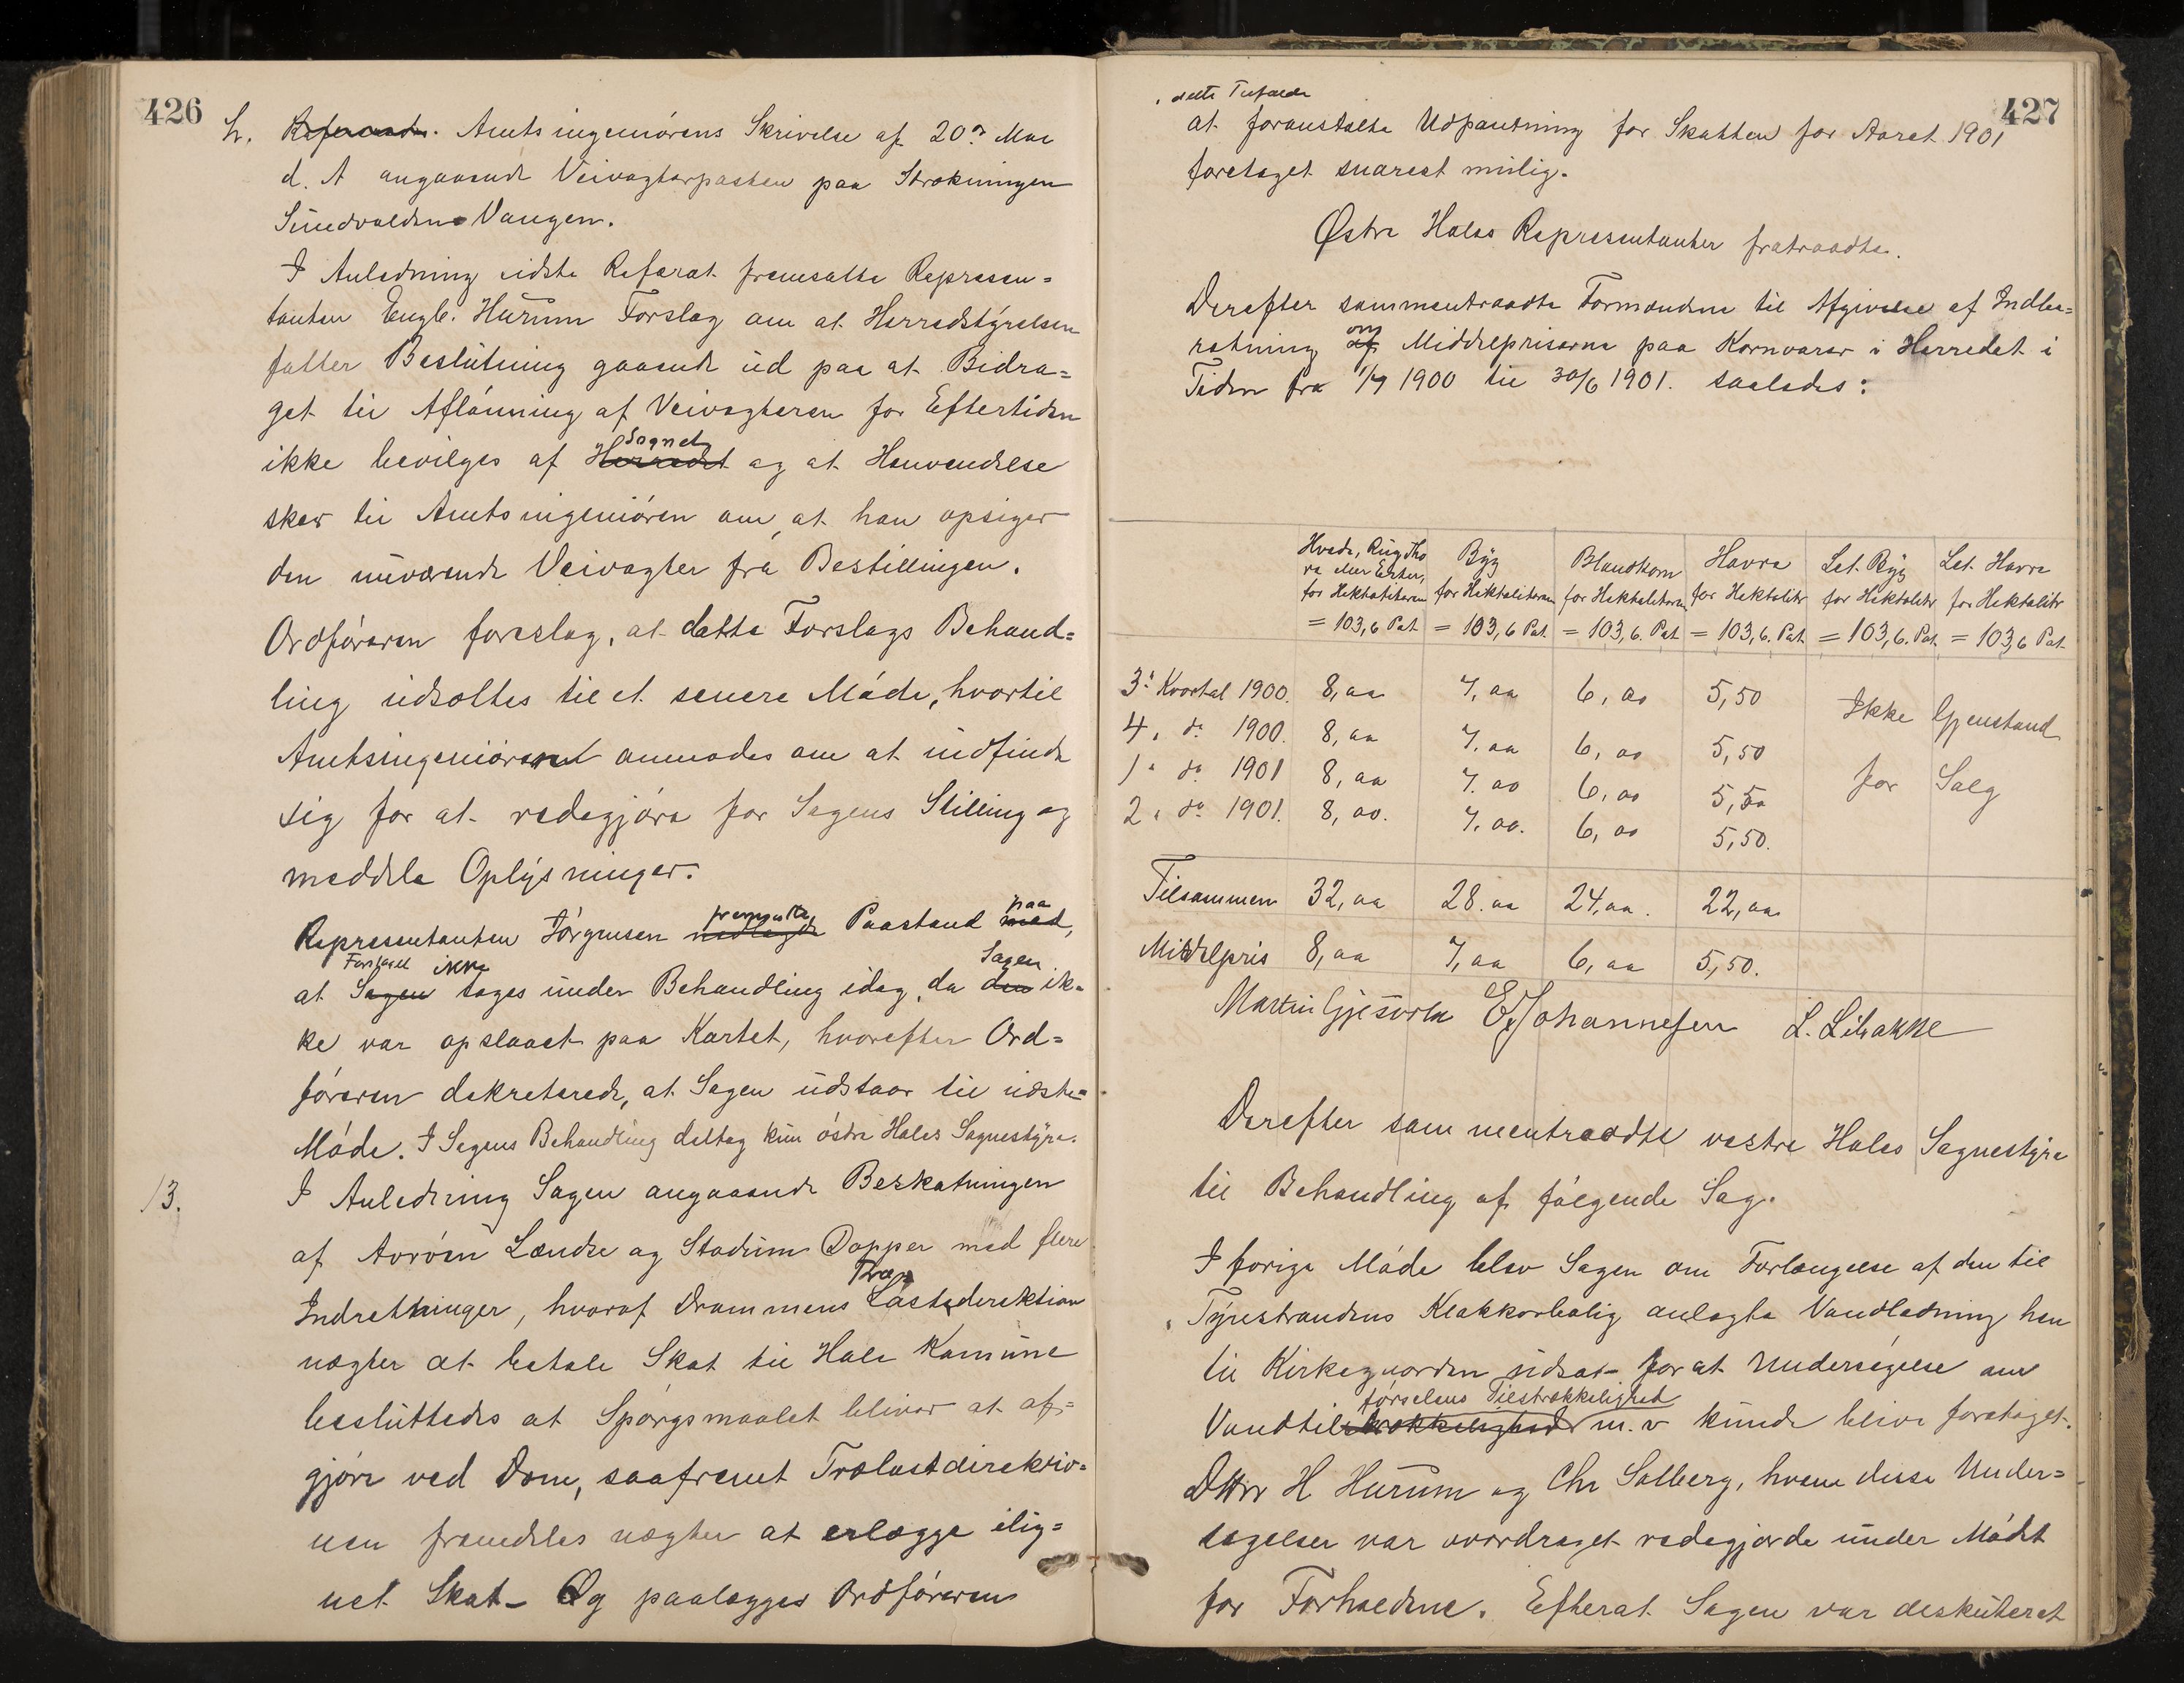 426
h. Referert. Amtsingeniörens Skrivelse af 20de Mai
d. A angaaende Veivogterposten paa Strækningen
Sundvolden-Vangen.
I Anledning sidste Referat fremsatte Represen=
tanten Engb. Hurum Forslag om at Herredstyrelsen
fatter Beslutning gaaende ud paa at Bidra=
get til Aflönning af Veivogteren for Eftertiden
Sognet
ikke bevilges af Herredet og at Henvendelse
sker til Amtsingeniören om at han opsiger
den nuværende Veivogter fra Bestillingen.
Ordföreren foreslog, at dette Forslags Behand=
ling udsættes til et senere Möde, hvortil
Amtsingeniören anmodes om at indfinde
sig for at redegjöre for Sagens Stilling og
meddele Oplysninger.
fremsatte paa
Representanten Jörgensen nedlagde Paastand med,
Forslaget ikke Sagen
at Sagen toges under Behandling idag, da den ik=
ke var opslaaet paa Kartet, hvorefter Ord=
föreren dekreterede, at Sagen udstaar til næste
Möde. I Sagens Behandling deltog kun östre Holes Sognestyre.
13. I Anledning Sagen angaaende Beskatningen
af Averöen Lændse og Stadum Dapper med flere
Træ
Indretninger, hvoraf Drammens Lastedirektion
nægter at betale Skat til Hole Komune
besluttedes at Spörgsmaalet bliver at af=
gjöre ved Dom, saafremt Trælastdirektio=
nen fremdeles nægter at erlægge ilig=
net Skat - Og paalægges Ordföreren
427
i dette Tilfælde
at foranstalte Udpantning for Skatten for Aaret 1901
foretaget snarest mulig.
Østre Holes Representanter fratraadte.
Derefter sammentraadte Formændene til Afgivelse af Indbe=
om
retning af Middelpriserne paa Kornvarer i Herredet i
Tiden fra 1/7 1900 til 30/6 1901. saaledes:
Hvede, Rug
re eller Erter, Byg Blandkorn Havre Let. Byg Let. Havre
for Hektoliteren for Hektoliteren for Hektoliteren for Hektolitr for Hektolitr for Hektolitr
= 103,6 Pot = 103,6 Pot. = 103,6. Pot = 103,6. Pot = 103,6. Pot. = 103,6 Pot
3: Kvartal 1900. 8,oo 7,oo 6,oo 5,50 Ikke Gjenstand
4. do 1900. 8,oo 7.oo 6,oo 5,50
1. do 1901 8,oo 7.oo 6,oo 5,50 for Salg
2. do 1901. 8,oo. 7.oo. 6,oo 5,50.
Tilsammen 32,oo 28.oo 24,oo. 22,oo
Middelpris 8,oo 7,oo 6,oo 5,50.
Martin Gjesvold E Johannesen L. Libakke
Derefter sammentraadte vestre Holes Sognestyre
til Behandling af fölgende Sag.
I forige Möde blev Sagen om Forlængelse af den til
Tyristrandens Klokkerbolig anlagte Vandledning hen
til Kirkegaarden udsat for at Undersögelse om
förselens Tilstrækkelighed
Vandtilstrækkelighed m.v kunde blive foretaget.
DHrr H Hurum og Chr Solberg, hvem disse Under=
sögelser var overdraget redegjorde under Mödet
for Forholdene. Efterat Sagen var deskuteret